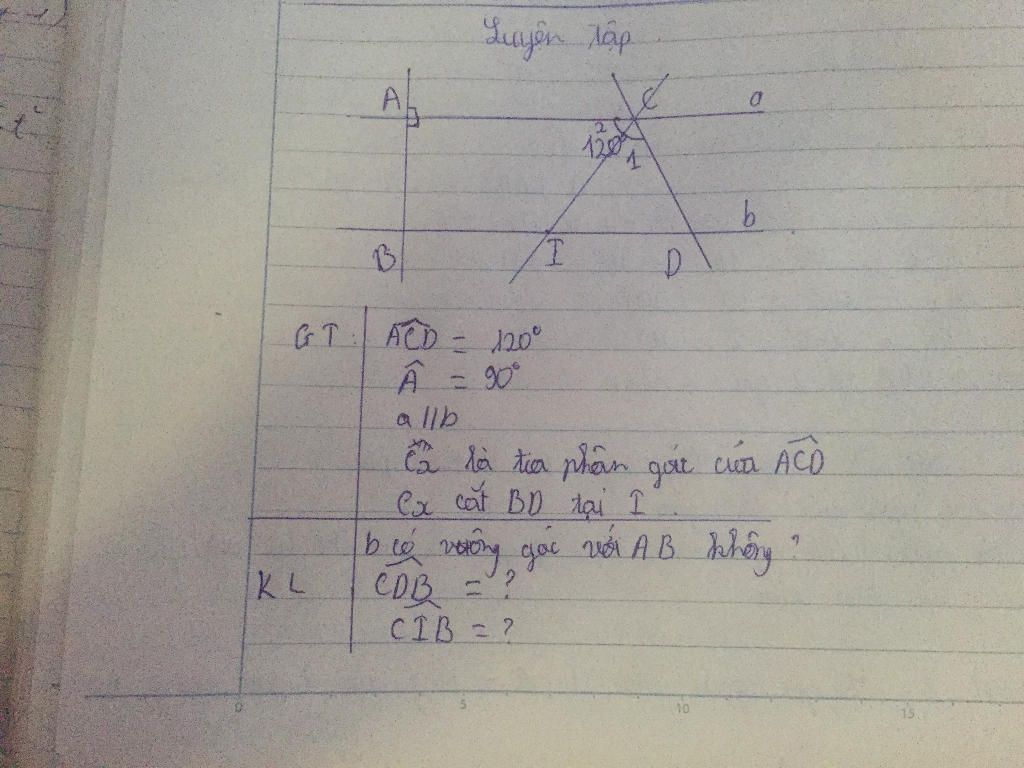 Luyện tập
A C a
2
120° 1
B I D b
GT: ACD = 120°
Â = 90°
a // b
Cx là tia phân góc của ACD
Cx cắt BD tại I.
b có vuông góc với AB không?
KL CDB = ?
CIB = ?
0 5 10 15